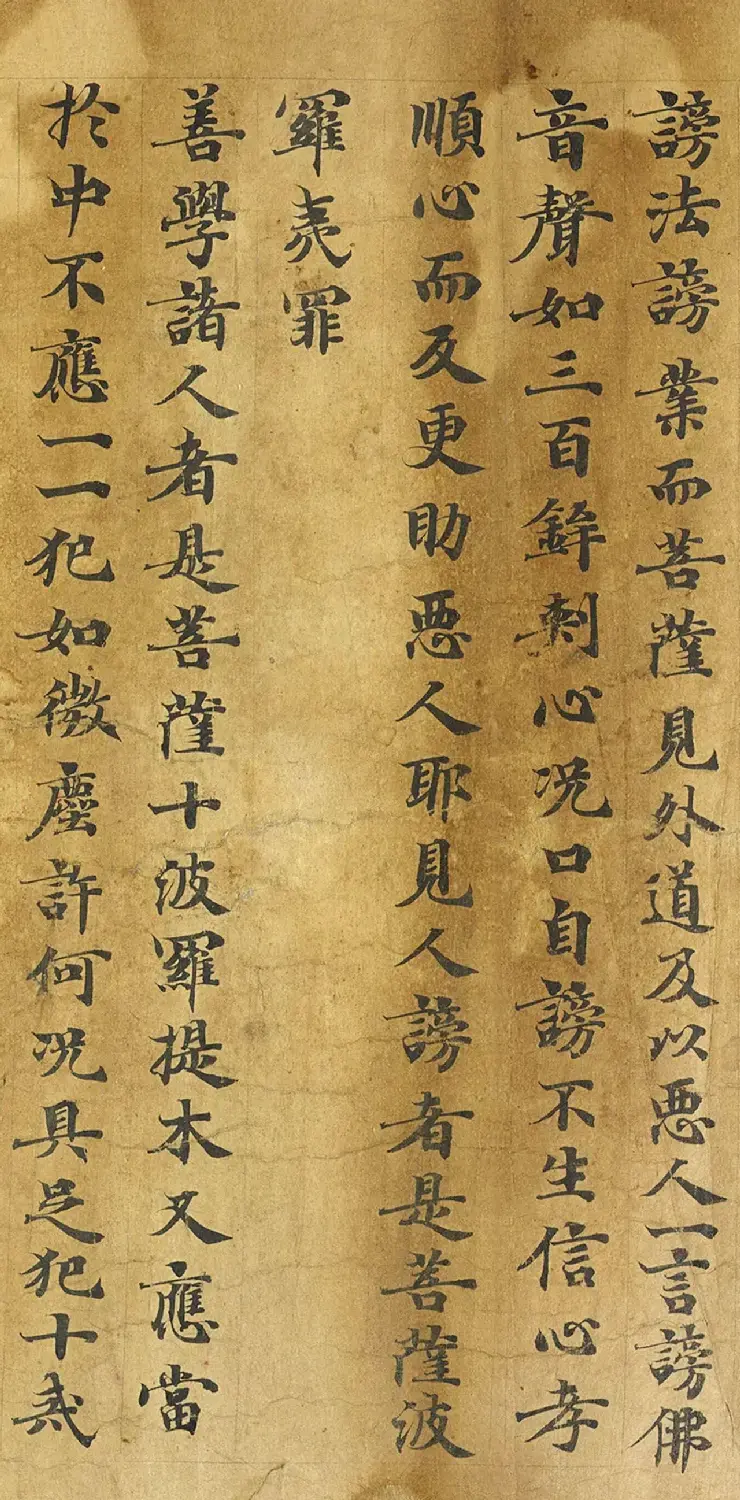 謗法謗業而菩薩見外道及以悪人一言謗佛
音聲如三百鉾刺心况口自謗不生信心孝
順心而反更助悪人耶見人謗者是菩薩波
羅夷罪
善學諸人者是菩薩十波羅提木叉應當
於中不應一一犯如微塵許何况具足犯十戒